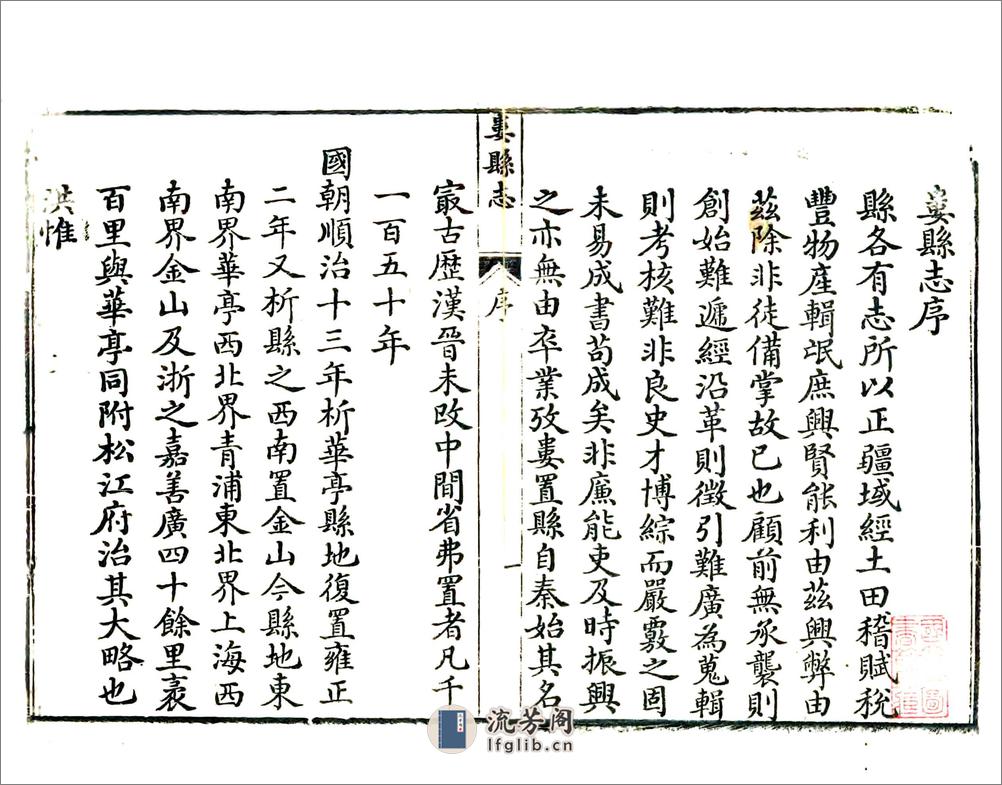 婁縣志序
縣各有志所以正疆域經土田稽賦稅
豐物產輯氓庶興賢能利由茲興弊由
茲除非徒備掌故已也顧前無承襲則
創始難遞經沿革則徵引難廣為蒐輯
則考核難非良史才博綜而嚴覈之固
未易成書苟成矣非廉能吏及時振興
之亦無由卒業攷婁置縣自秦始其名
婁縣志
序
一
㝡古歷漢晉未改中間省弗置者凡千
一百五十年
國朝順治十三年析華亭縣地復置雍正
二年又析縣之西南置金山今縣地東
南界華亭西北界青浦東北界上海西
南界金山及浙之嘉善廣四十餘里袤
百里與華亭同附松江府治其大略也
洪惟
流芳阁
lfglib.cn